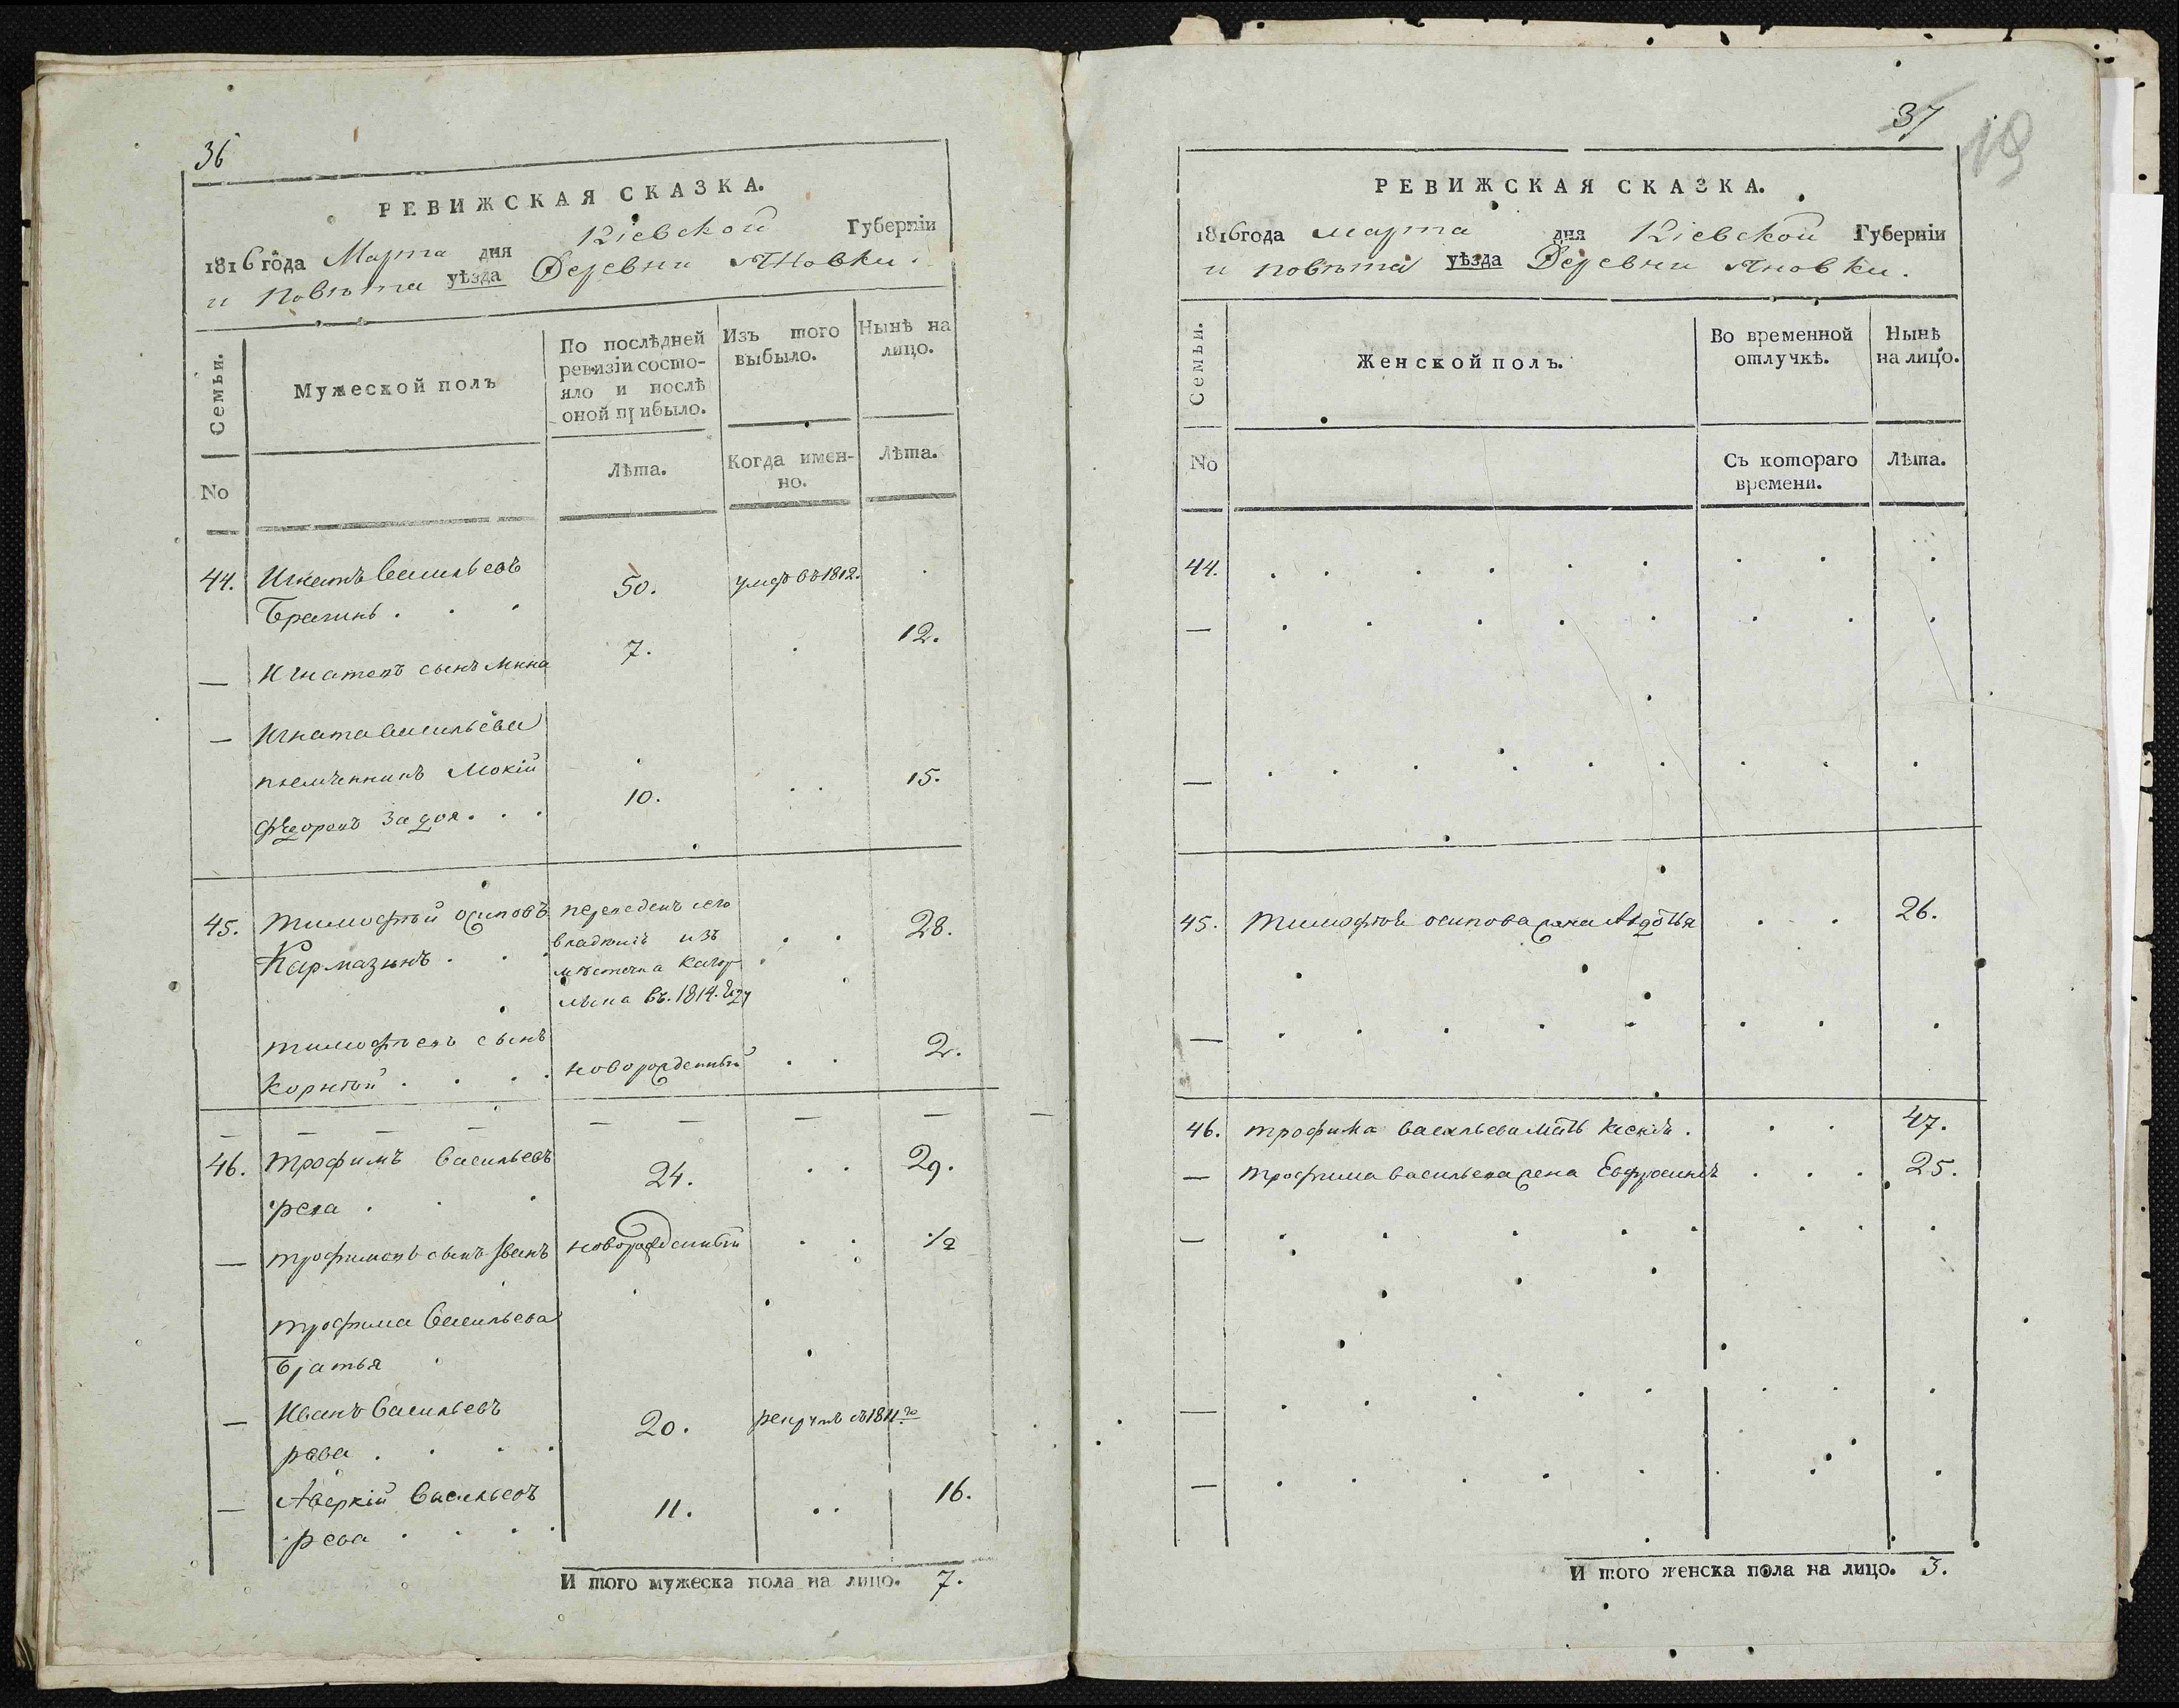 36
РЕВИЖСКАЯ СКАЗКА.
1816 года Марта дня Кіевской Губерніи
и повѣта уѣзда Деревни Яновки.
Семьи.
Мужеской полъ
По послѣдней ревизіи состояло и послѣ оной прибыло.
Изъ того выбыло.
Нынѣ на лицо.
No
Лѣта.
Когда именно.
Лѣта.
44. Игнатъ Васильевъ
Брагинъ . . . 50. умеръ въ 1812. .
— Игнатовъ сынъ Мина 7. . 12.
— Игната Васильева
племѣнникъ Мокій
Федоровъ Задоя . . . 10. . . 15.
45. Тимофѣй Осиповъ переведенъ
Кармазинъ . . . изъ . . 28.
мѣстечка
въ. 1814. году
Тимофѣевъ сынъ
Корнѣй . . . . новорожденный . . 2.
— — — — — — — —
46. Трофимъ Васильевъ
рева . . . 24. . . 29.
— Трофимовъ сынъ Іванъ новорожденный . . 1/2
Трофима Васильева
Братья
— Иванъ Васильевъ
рева . . . . 20. рекрутъ въ 1811.го
— Аверкій Васильевъ
рева . . . . 11. . . 16.
И того мужеска пола на лицо. 7.
37
19
РЕВИЖСКАЯ СКАЗКА.
1816 года марта дня Кіевской Губерніи
и повѣта уѣзда Деревни Яновки.
Семьи.
Женской полъ.
Во временной отлучкѣ.
Нынѣ на лицо.
No
Съ котораго времени.
Лѣта.
44. . . . . . . . . .
— . . . . . . . .
— . . . . . . . . .
45. Тимофѣя осипова жена Авдотья . . 26.
— . . . . . . . .
46. трофима васильева мать . . . 47.
— трофима васильева жена Евфросинія . . . 25.
— . . . . . . . .
— . . . . . . . .
— . . . . . . . .
И того женска пола на лицо. 3.